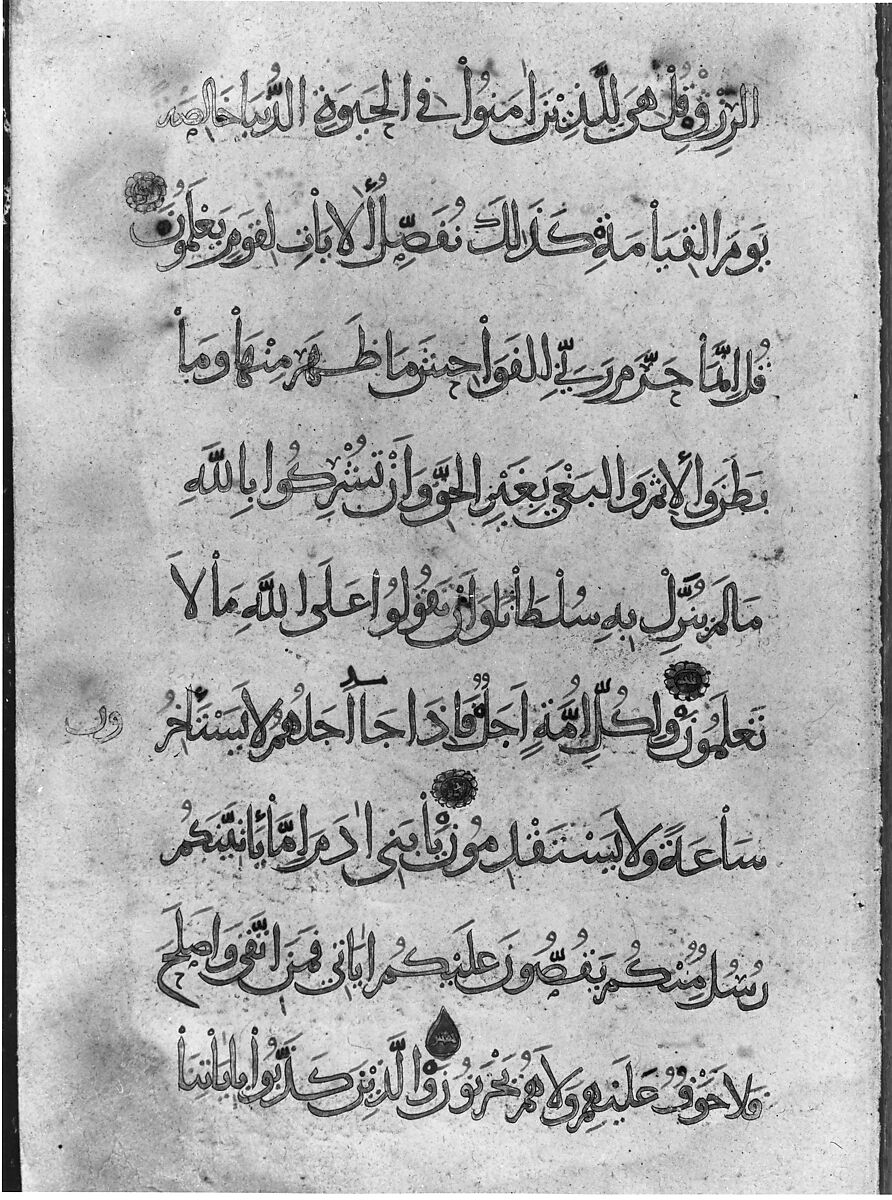 الرِّزْقِ قُلْ هِيَ لِلَّذِينَ اٰمَنُوْا فِي الْحَيَوةِ الدُّنْيَا خَالِصَة
يَوْمَ الْقِيَامَةِ كَذَالِكَ نُفَصِّلُ الْاٰيَاتِ لِقَوْمٍ يَعْلَمُونَ
قُلْ اِنَّمَا حَرَّمَ رَبِّيَ الْفَوَاحِشَ مَا ظَهَرَ مِنْهَا وَمَا
بَطَنَ وَالْاِثْمَ وَالْبَغْيَ بِغَيْرِ الْحَقِّ وَاَنْ تُشْرِكُوا بِاللَّهِ
مَا لَمْ يُنَزِّلْ بِهِ سُلْطَانًا وَاَنْ تَقُولُوا عَلَى اللَّهِ مَا لَا
تَعْلَمُونَ وَلِكُلِّ اُمَّةٍ اَجَلٌ فَاِذَا جَاۤ اَجَلُهُمْ لَا يَسْتَأْخِرُ
ون
سَاعَةً وَلَا يَسْتَقْدِمُونَ يَا بَنِي اٰدَمَ اِمَّا يَأْتِيَنَّكُمْ
رُسُلٌ مِنْكُمْ يَقُصُّونَ عَلَيْكُمْ اٰيَاتِي فَمَنِ اتَّقَى وَاَصْلَحَ
فَلَا خَوْفٌ عَلَيْهِمْ وَلَا هُمْ يَحْزَنُونَ وَالَّذِينَ كَذَّبُوا بِاٰيَاتِنَا